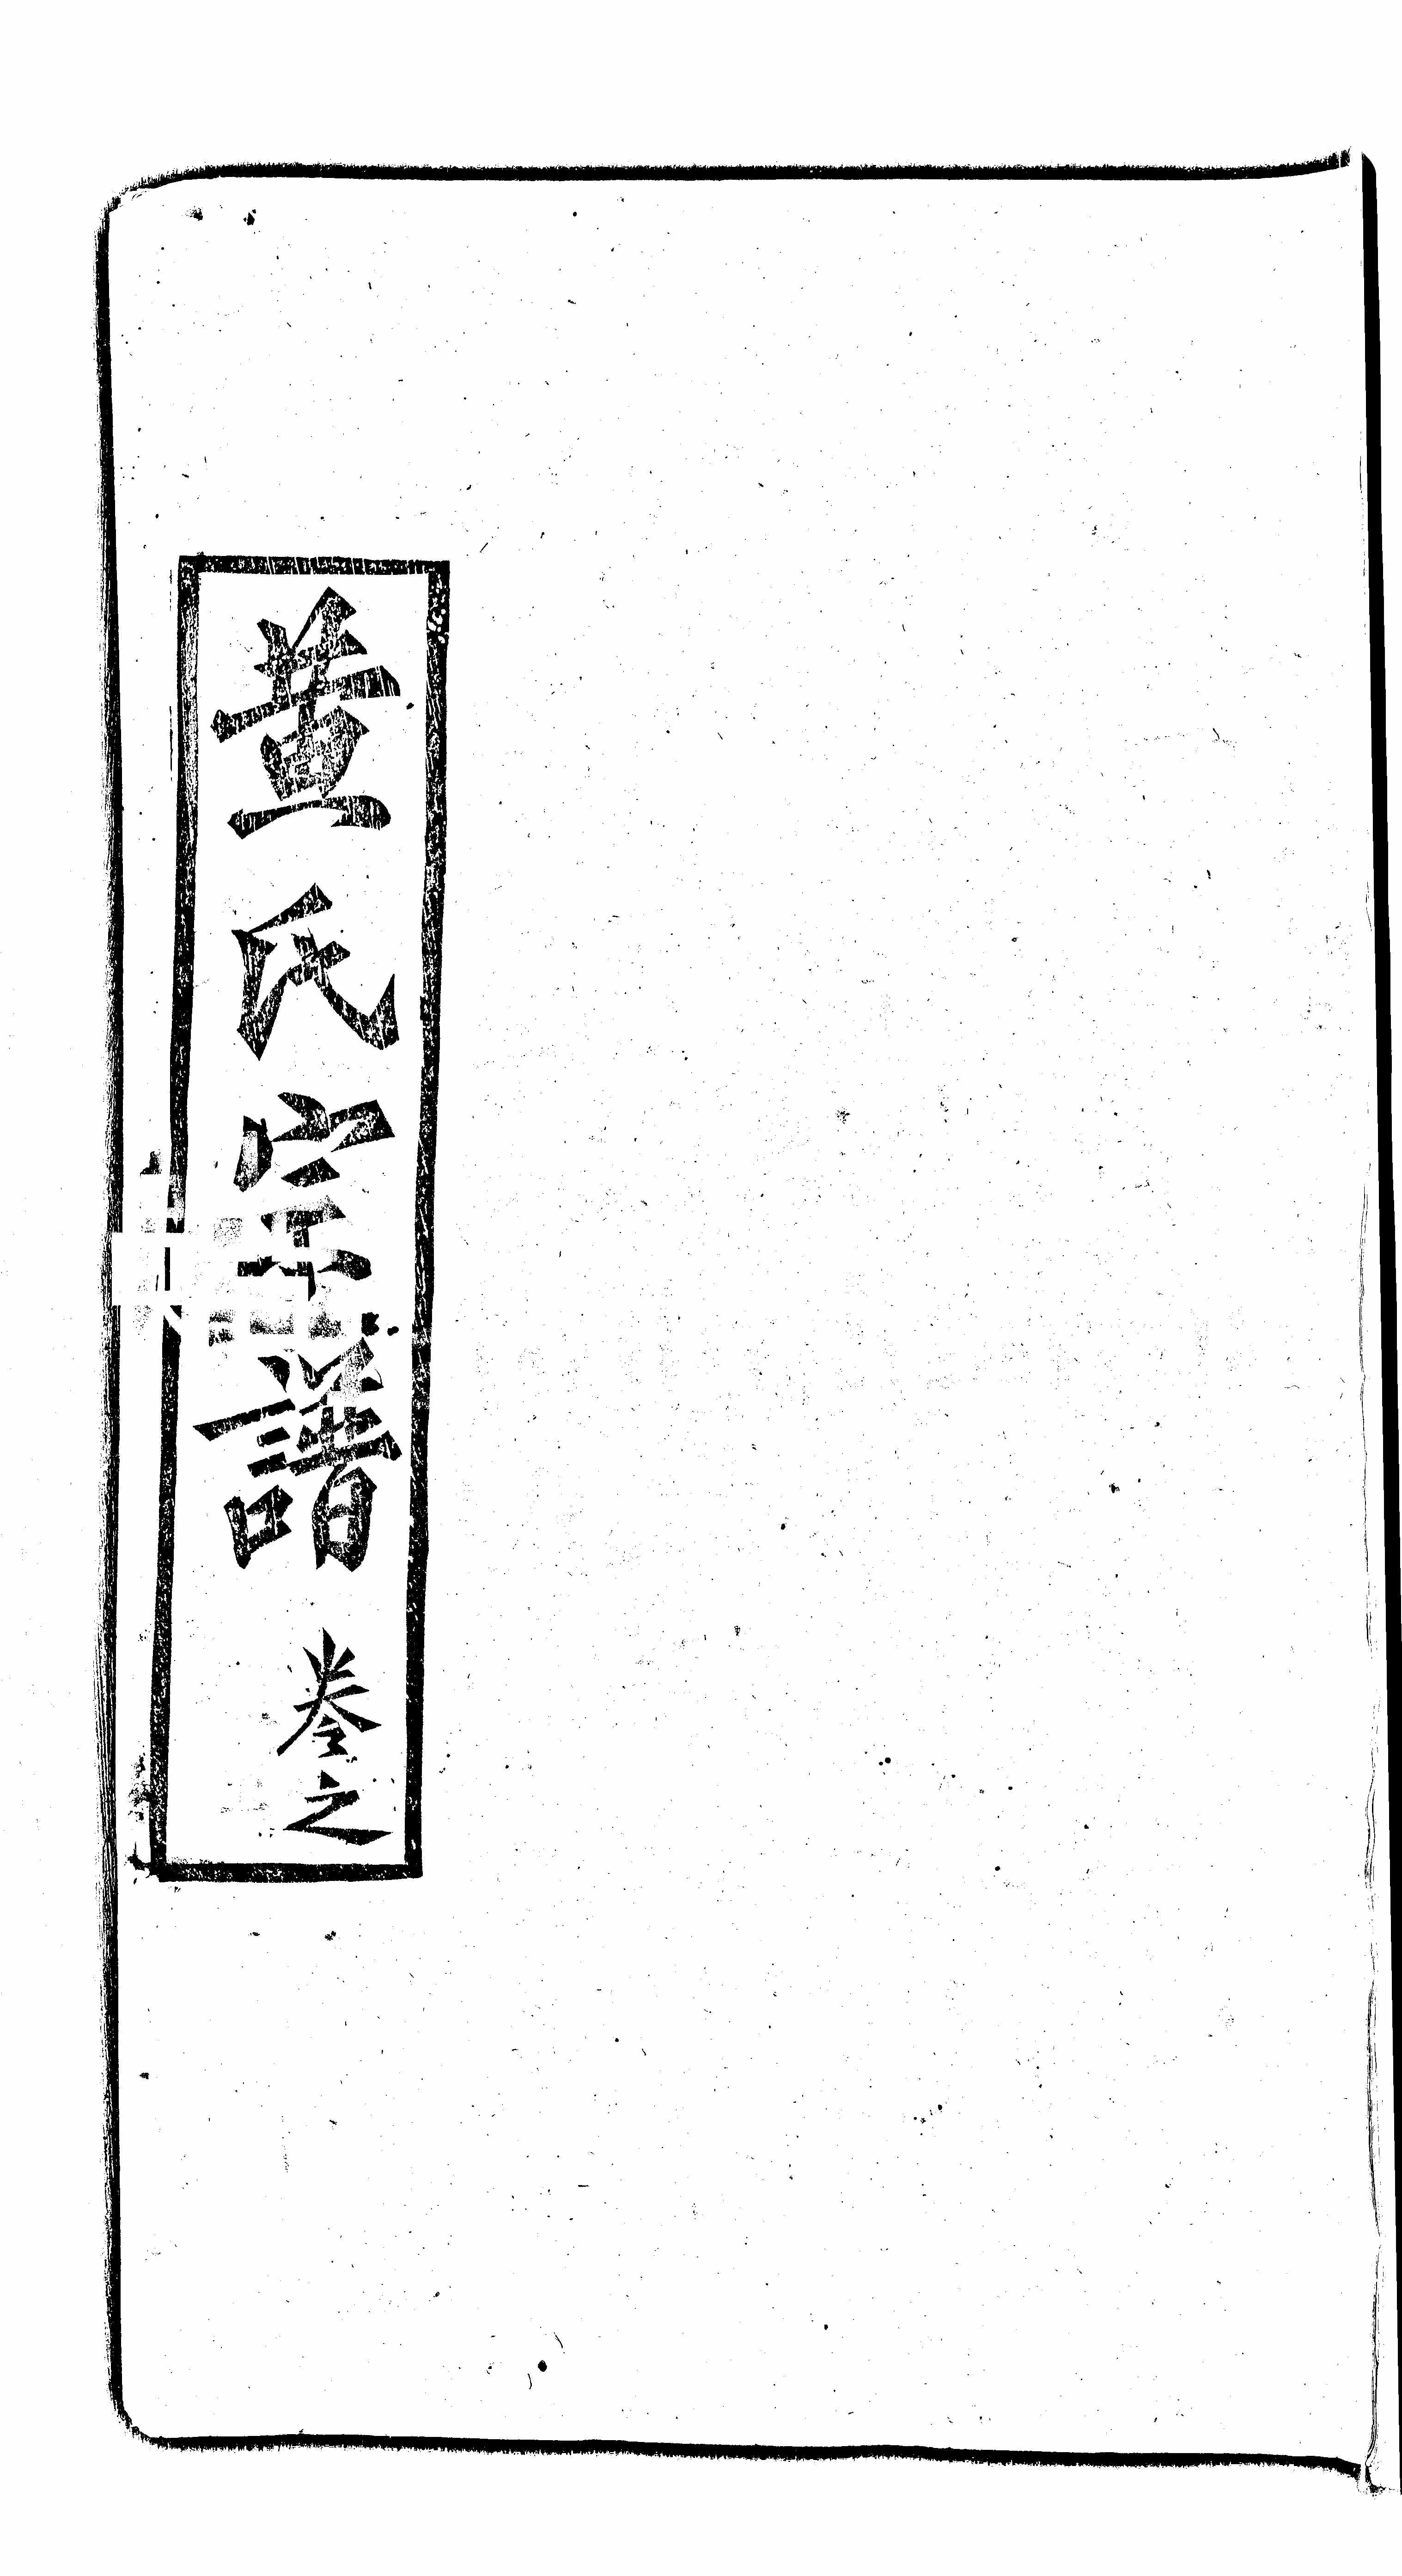 董氏宗譜
卷之